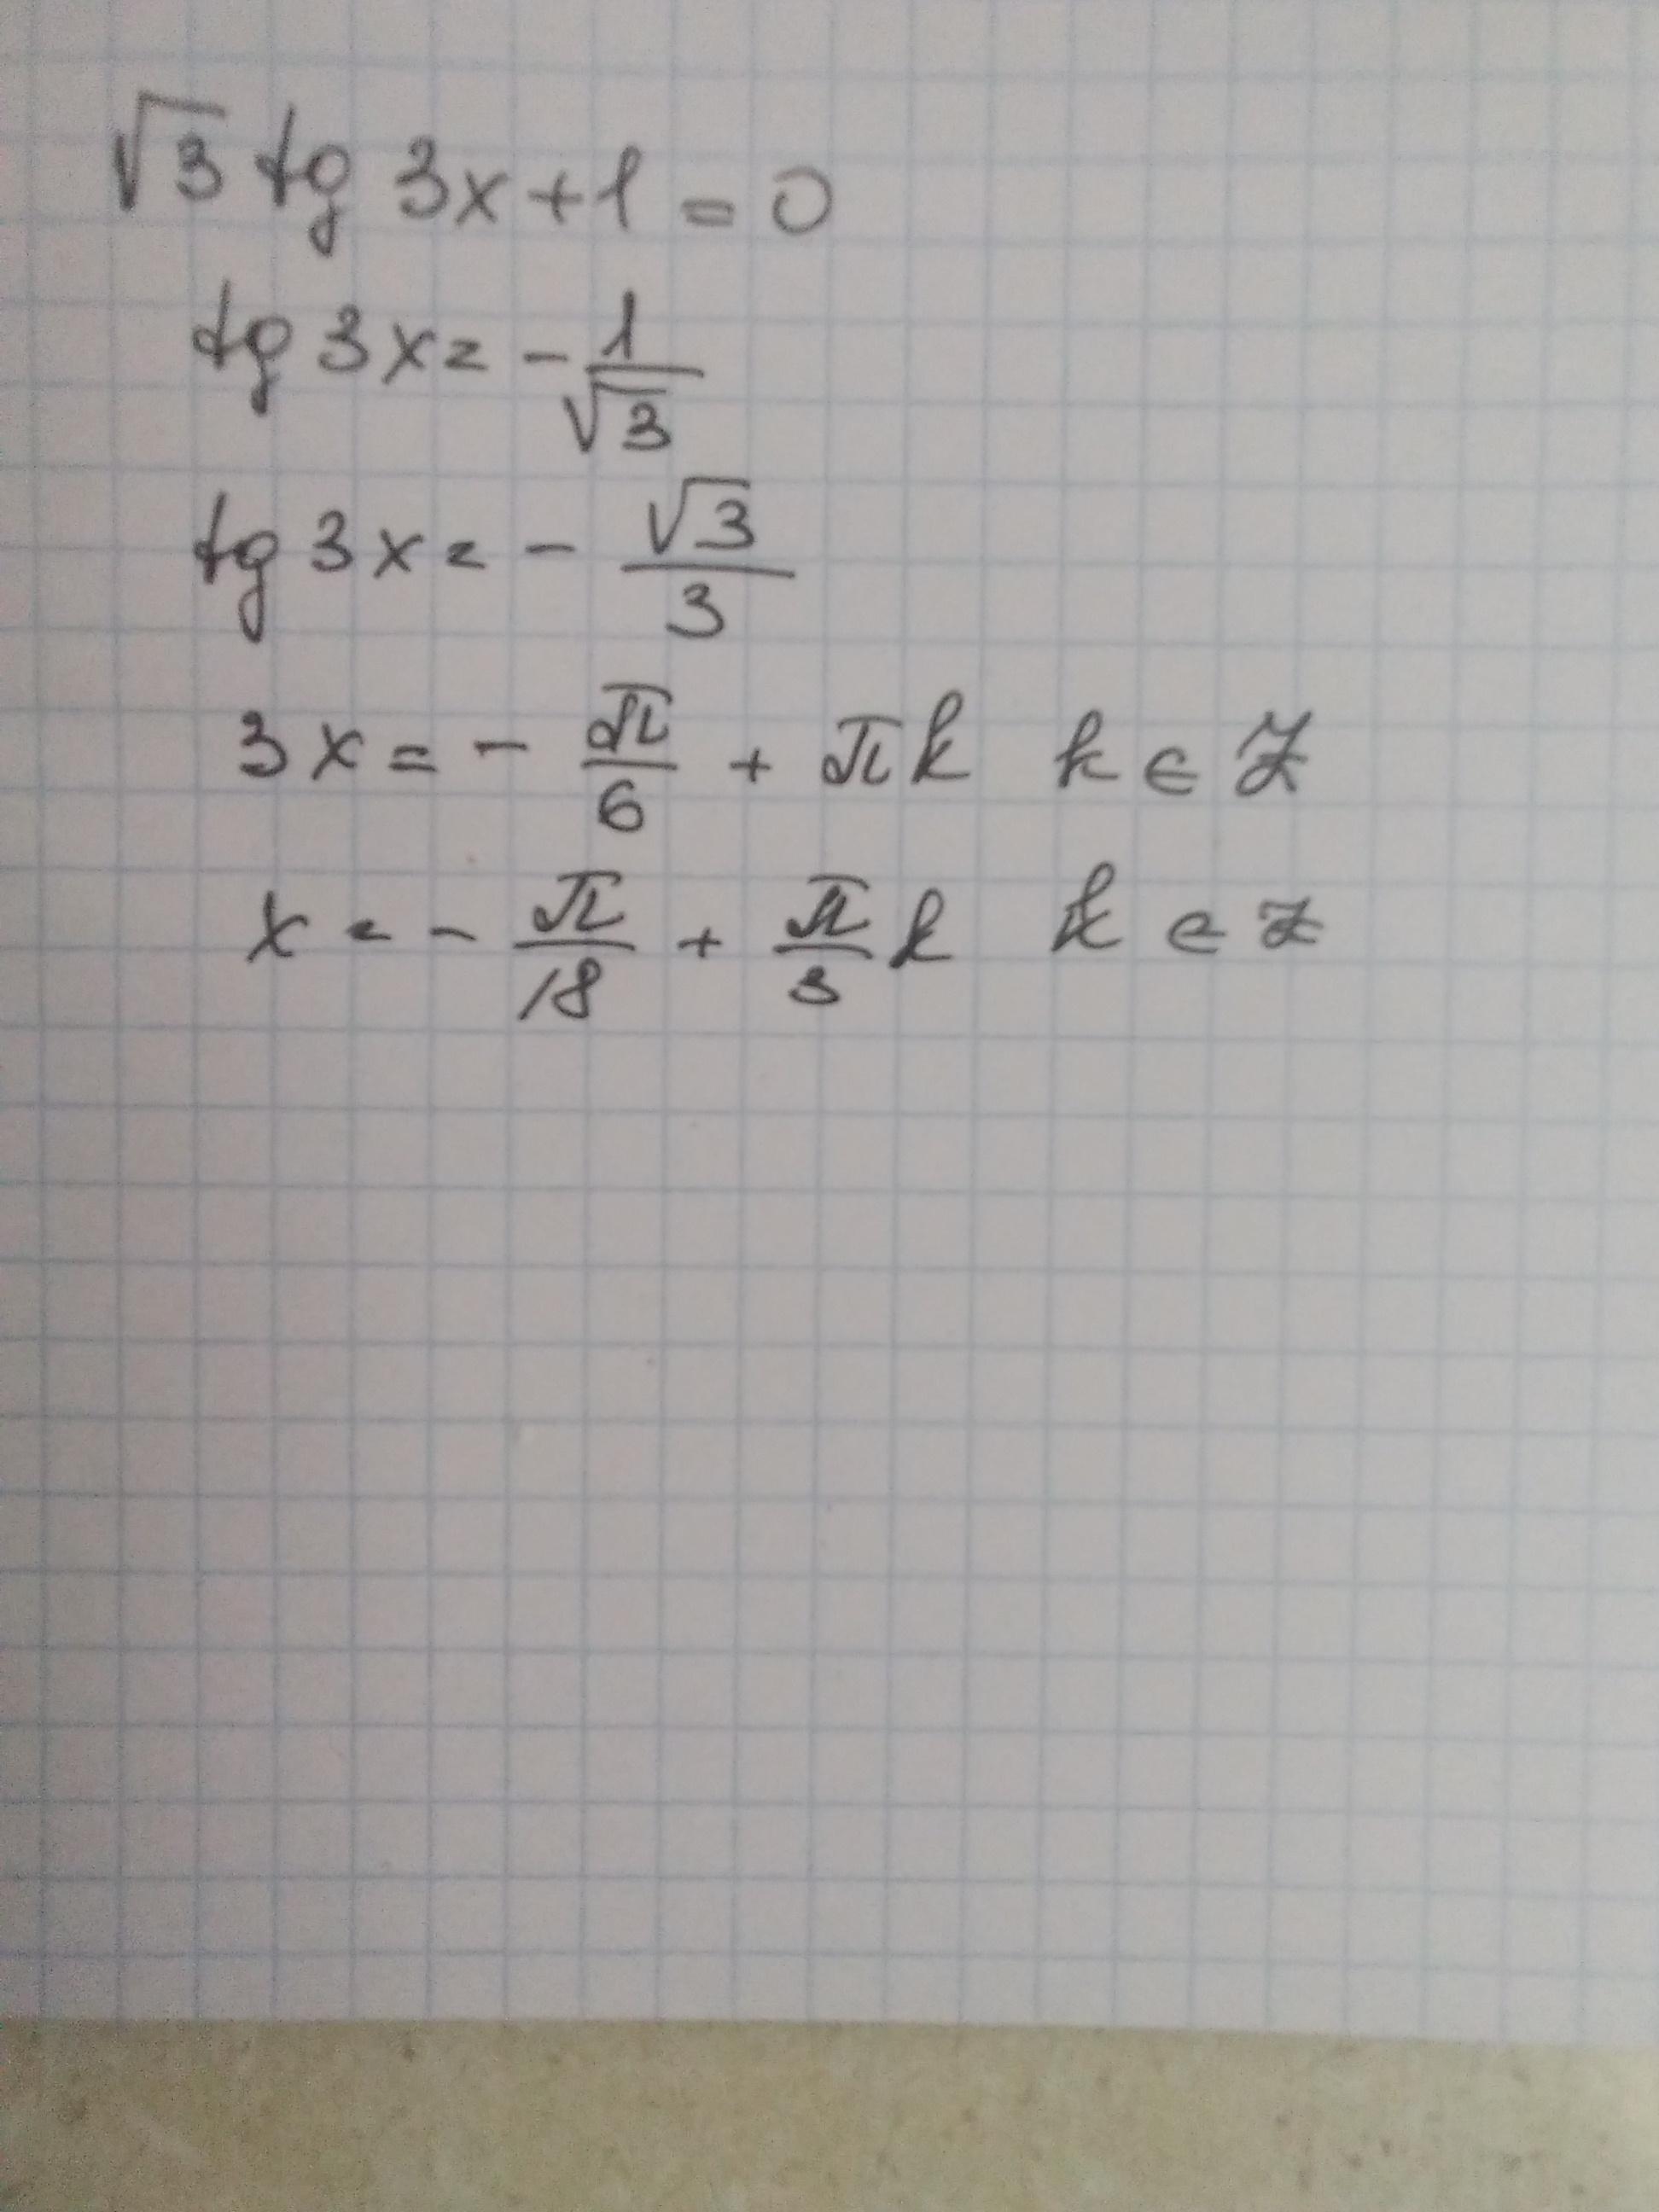 √3 tg 3x + 1 = 0
tg 3x = - 1/√3
tg 3x = - √3/3
3x = - π/6 + πk k ∈ Z
x = - π/18 + π/3 k k ∈ Z